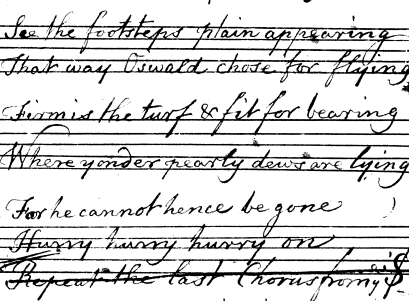 See the footsteps plain appearing
That way Oswald chose for flying
Firm is the turf & fit for bearing
Where yonder pearly dews are lying
For he cannot hence be gone
Hurry hurry hurry on
Repeat the last Chorus from